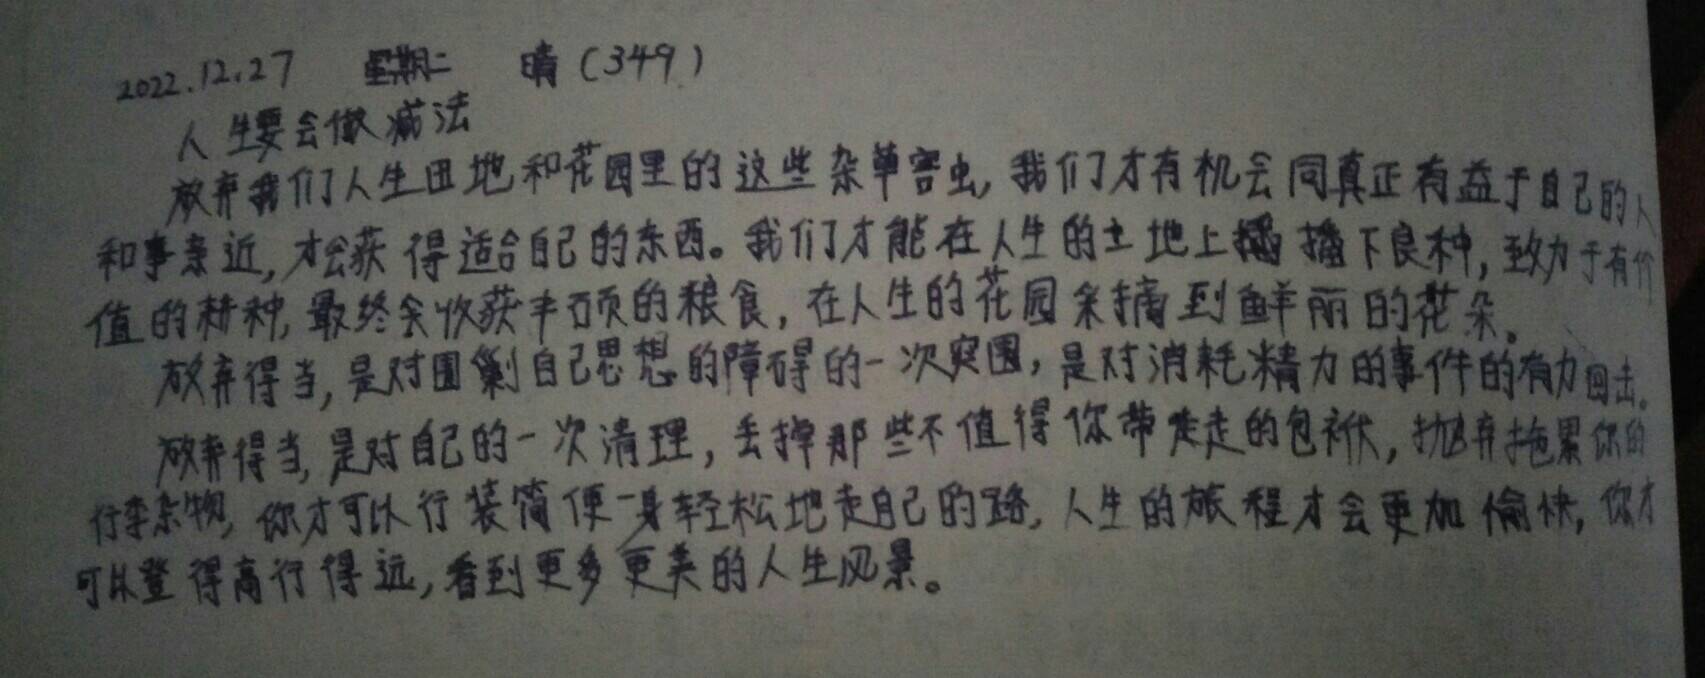 2022.12.27 星期二 晴(349)
人生要会做减法
放弃我们人生田地和花园里的这些杂草害虫,我们才有机会同真正有益于自己的人
和事亲近,才会获得适合自己的东西。我们才能在人生的土地上播下良种,致力于有价
值的耕种,最终会收获丰硕的粮食,在人生的花园采摘到鲜丽的花朵。
放弃得当,是对围剿自己思想的障碍的一次突围,是对消耗精力的事件的有力回击。
放弃得当,是对自己的一次清理,丢掉那些不值得你带走的包袱,抛弃拖累你的
行李杂物,你才可以行装简便一身轻松地走自己的路,人生的旅程才会更加愉快,你才
可以登得高行得远,看到更多更美的人生风景。